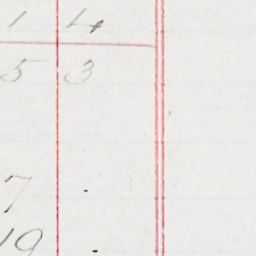 1 4
5 3
7
19